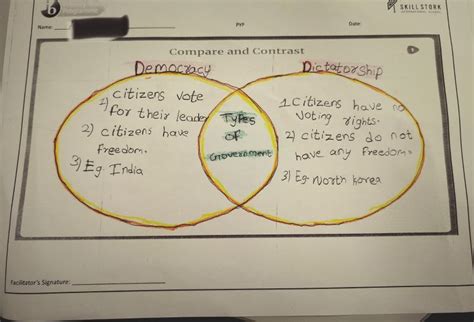 b
SKILL STORK
INTERNATIONAL SCHOOL
Name:
PYP
Date:
Compare and Contrast
Democracy
Dictatorship
1) citizens vote
for their leader
2) citizens have
freedom.
3) Eg India
Types
of
Government
1. citizens have no
voting rights.
2) citizens do not
have any freedom.
3) Eg North korea
Facilitator's Signature: